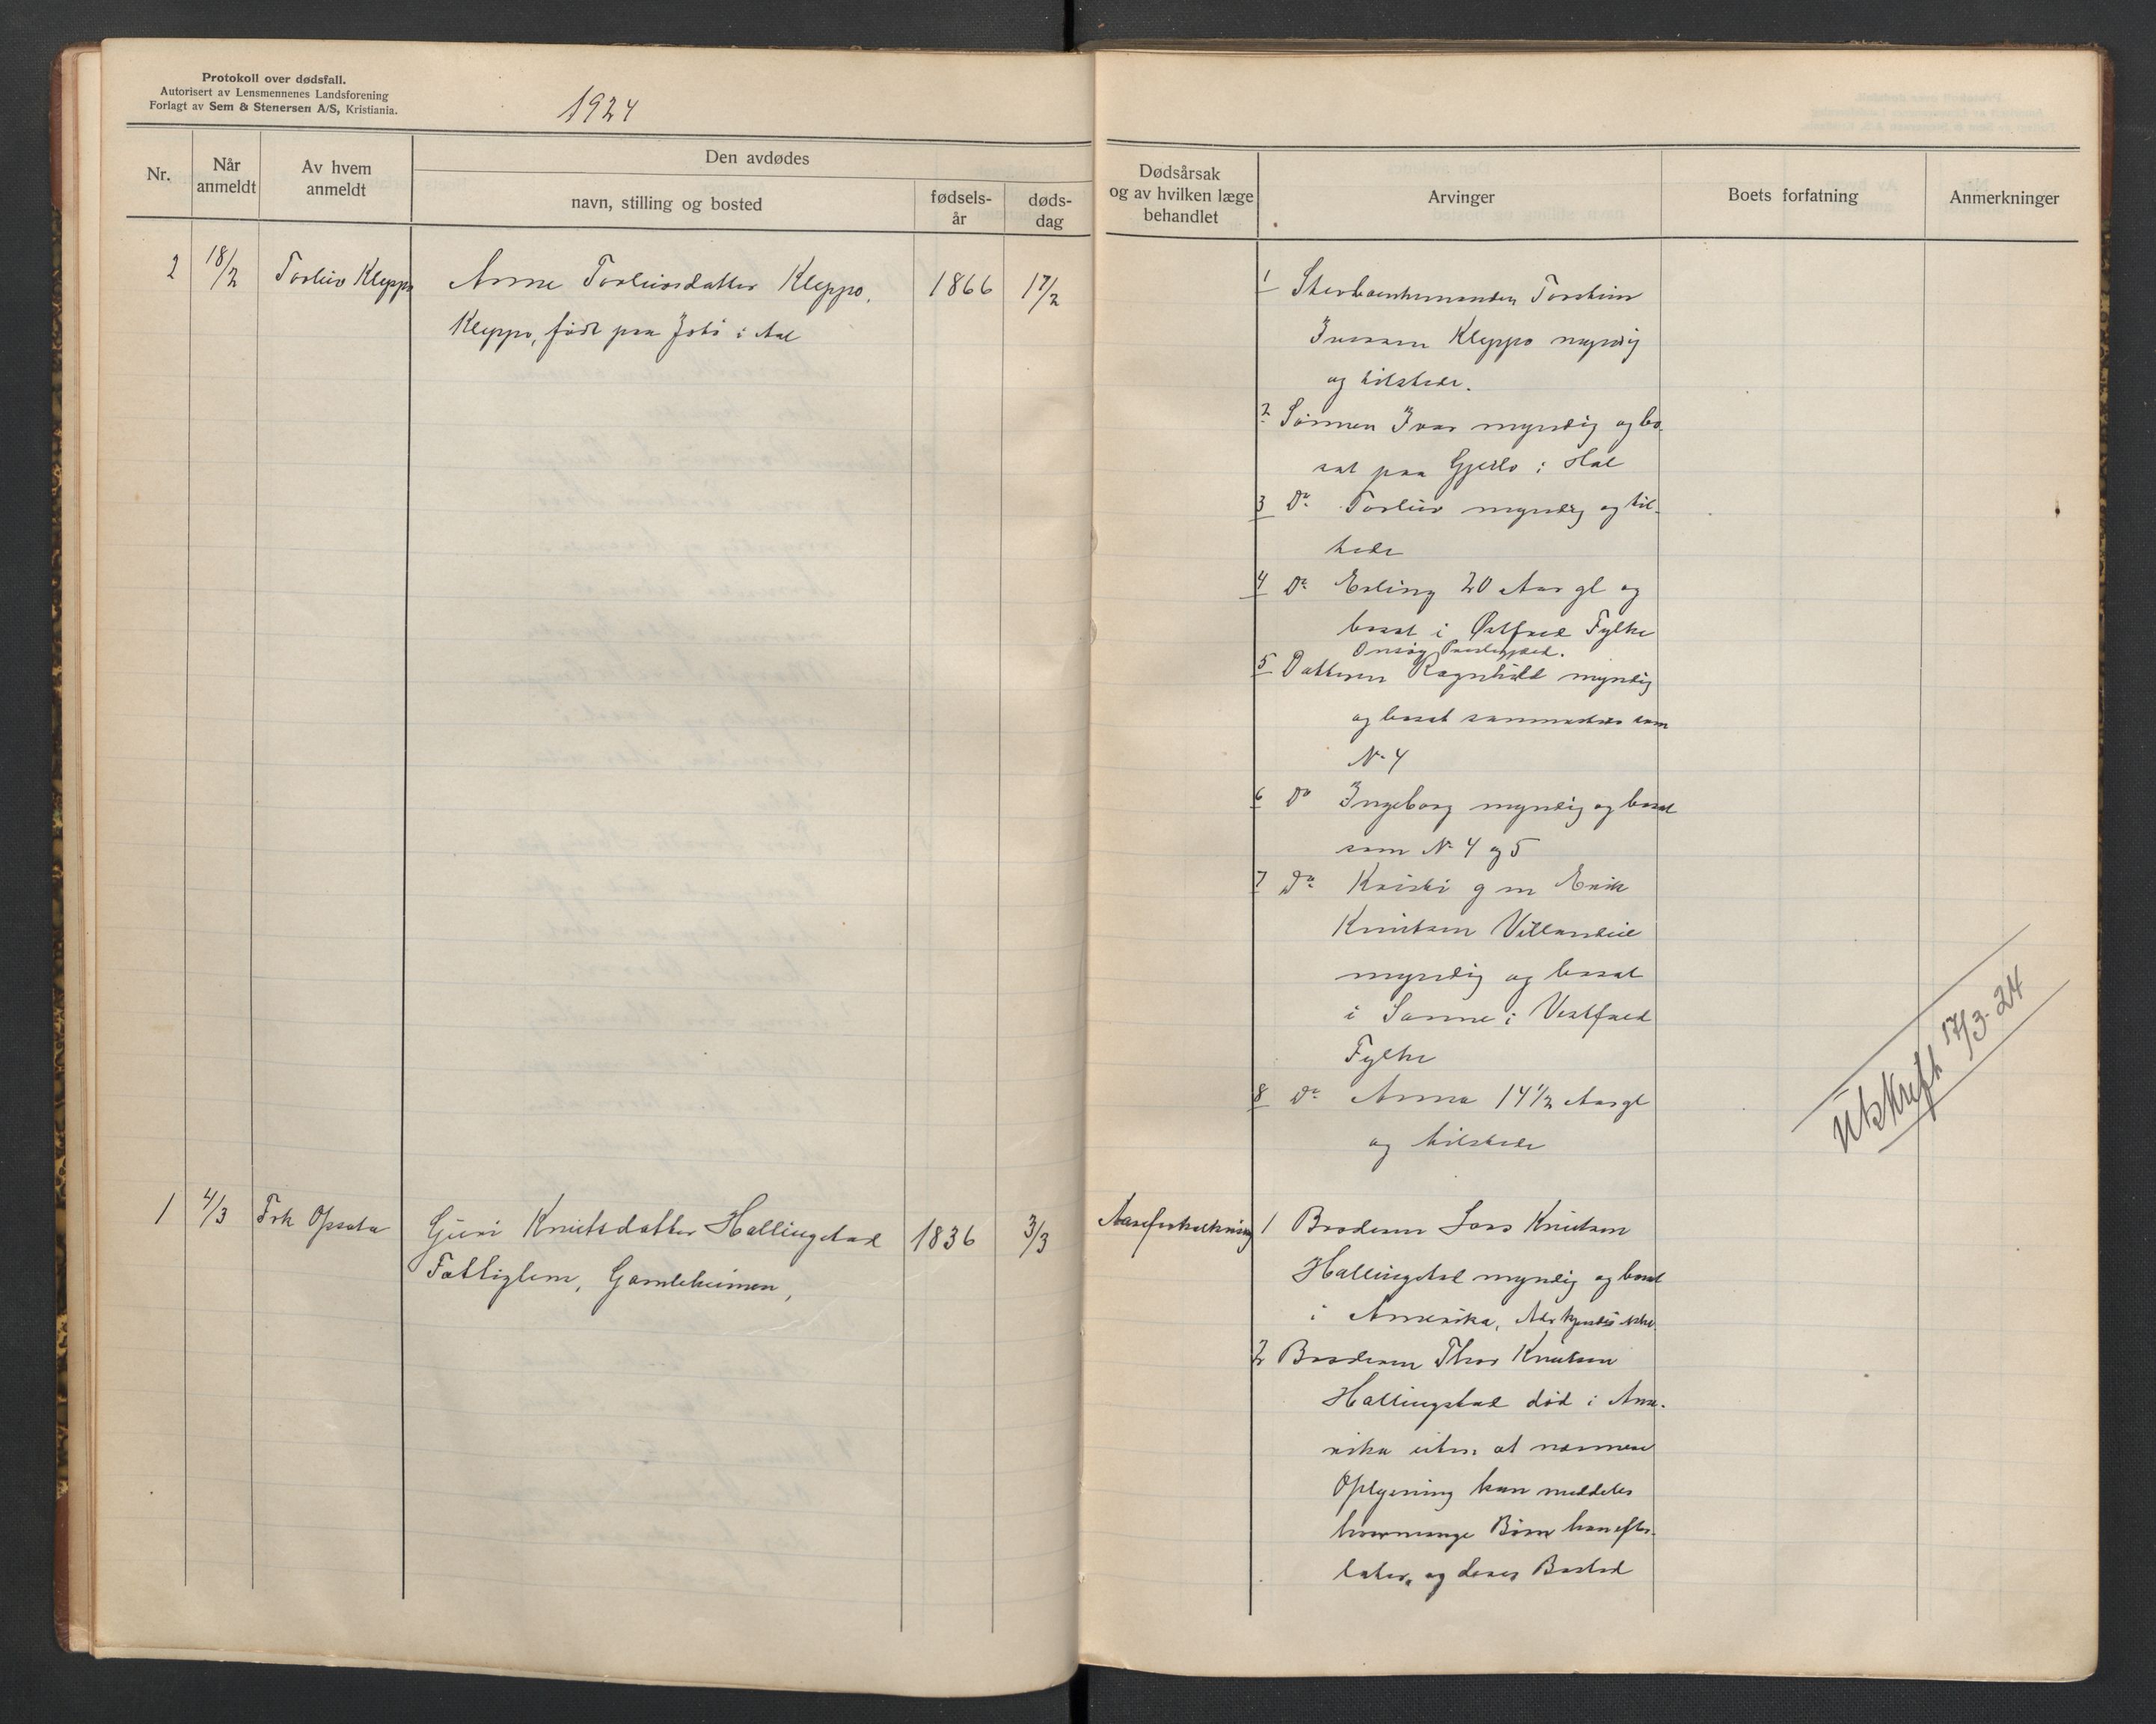 Protokoll over dødsfall.
Autorisert av Lensmennenes Landsforening
Forlagt av Sem & Stenersen A/S, Kristiania.
1924
Nr.
Når anmeldt
Av hvem anmeldt
Den avdødes
navn, stilling og bosted
fødsels-år
døds-dag
Dødsårsak og av hvilken læge behandlet
Arvinger
Boets forfatning
Anmerkninger
2 18/2 Torleiv Kleppo Anne Torleivsdatter Kleppo, 1866 17/2
Kleppo, født paa i Aal
1 Torstein
Kleppo myndig
og tilstede.
2 Sønnen Ivar myndig og bo-
sat paa i Hol
3 Do Torleiv myndig og til-
stede
4 Do Erling 20 Aar gl og
bosat i Østfold Fylke
Onsøy Prestegjeld.
5 Datteren Ragnhild myndig
og bosat sammesteds som
No 4
6 Do Ingeborg myndig og bosat
som No 4 og 5
7 Do Kristi g m Erik
Knutsen
myndig og bosat
i i Vestfold
Fylke
8 Do Anna 14 1/2 Aar gl
og tilstede
Utskrift 17/3-24
1 4/3 Frk Opsata Guri Knutsdatter Hallingstad 1836 3/3 Aareforkalkning
Fattiglem, Gamleheimen,
1 Broderen Lars Knutsen
Hallingstad myndig og bosat
i Amerika, Adr kjendes ikke.
2 Broderen Thor Knutsen
Hallingstad død i Ame-
rika uten at nærmere
Oplysning kan meddeles
hvormange Børn han efter-
later, og deres Bosted